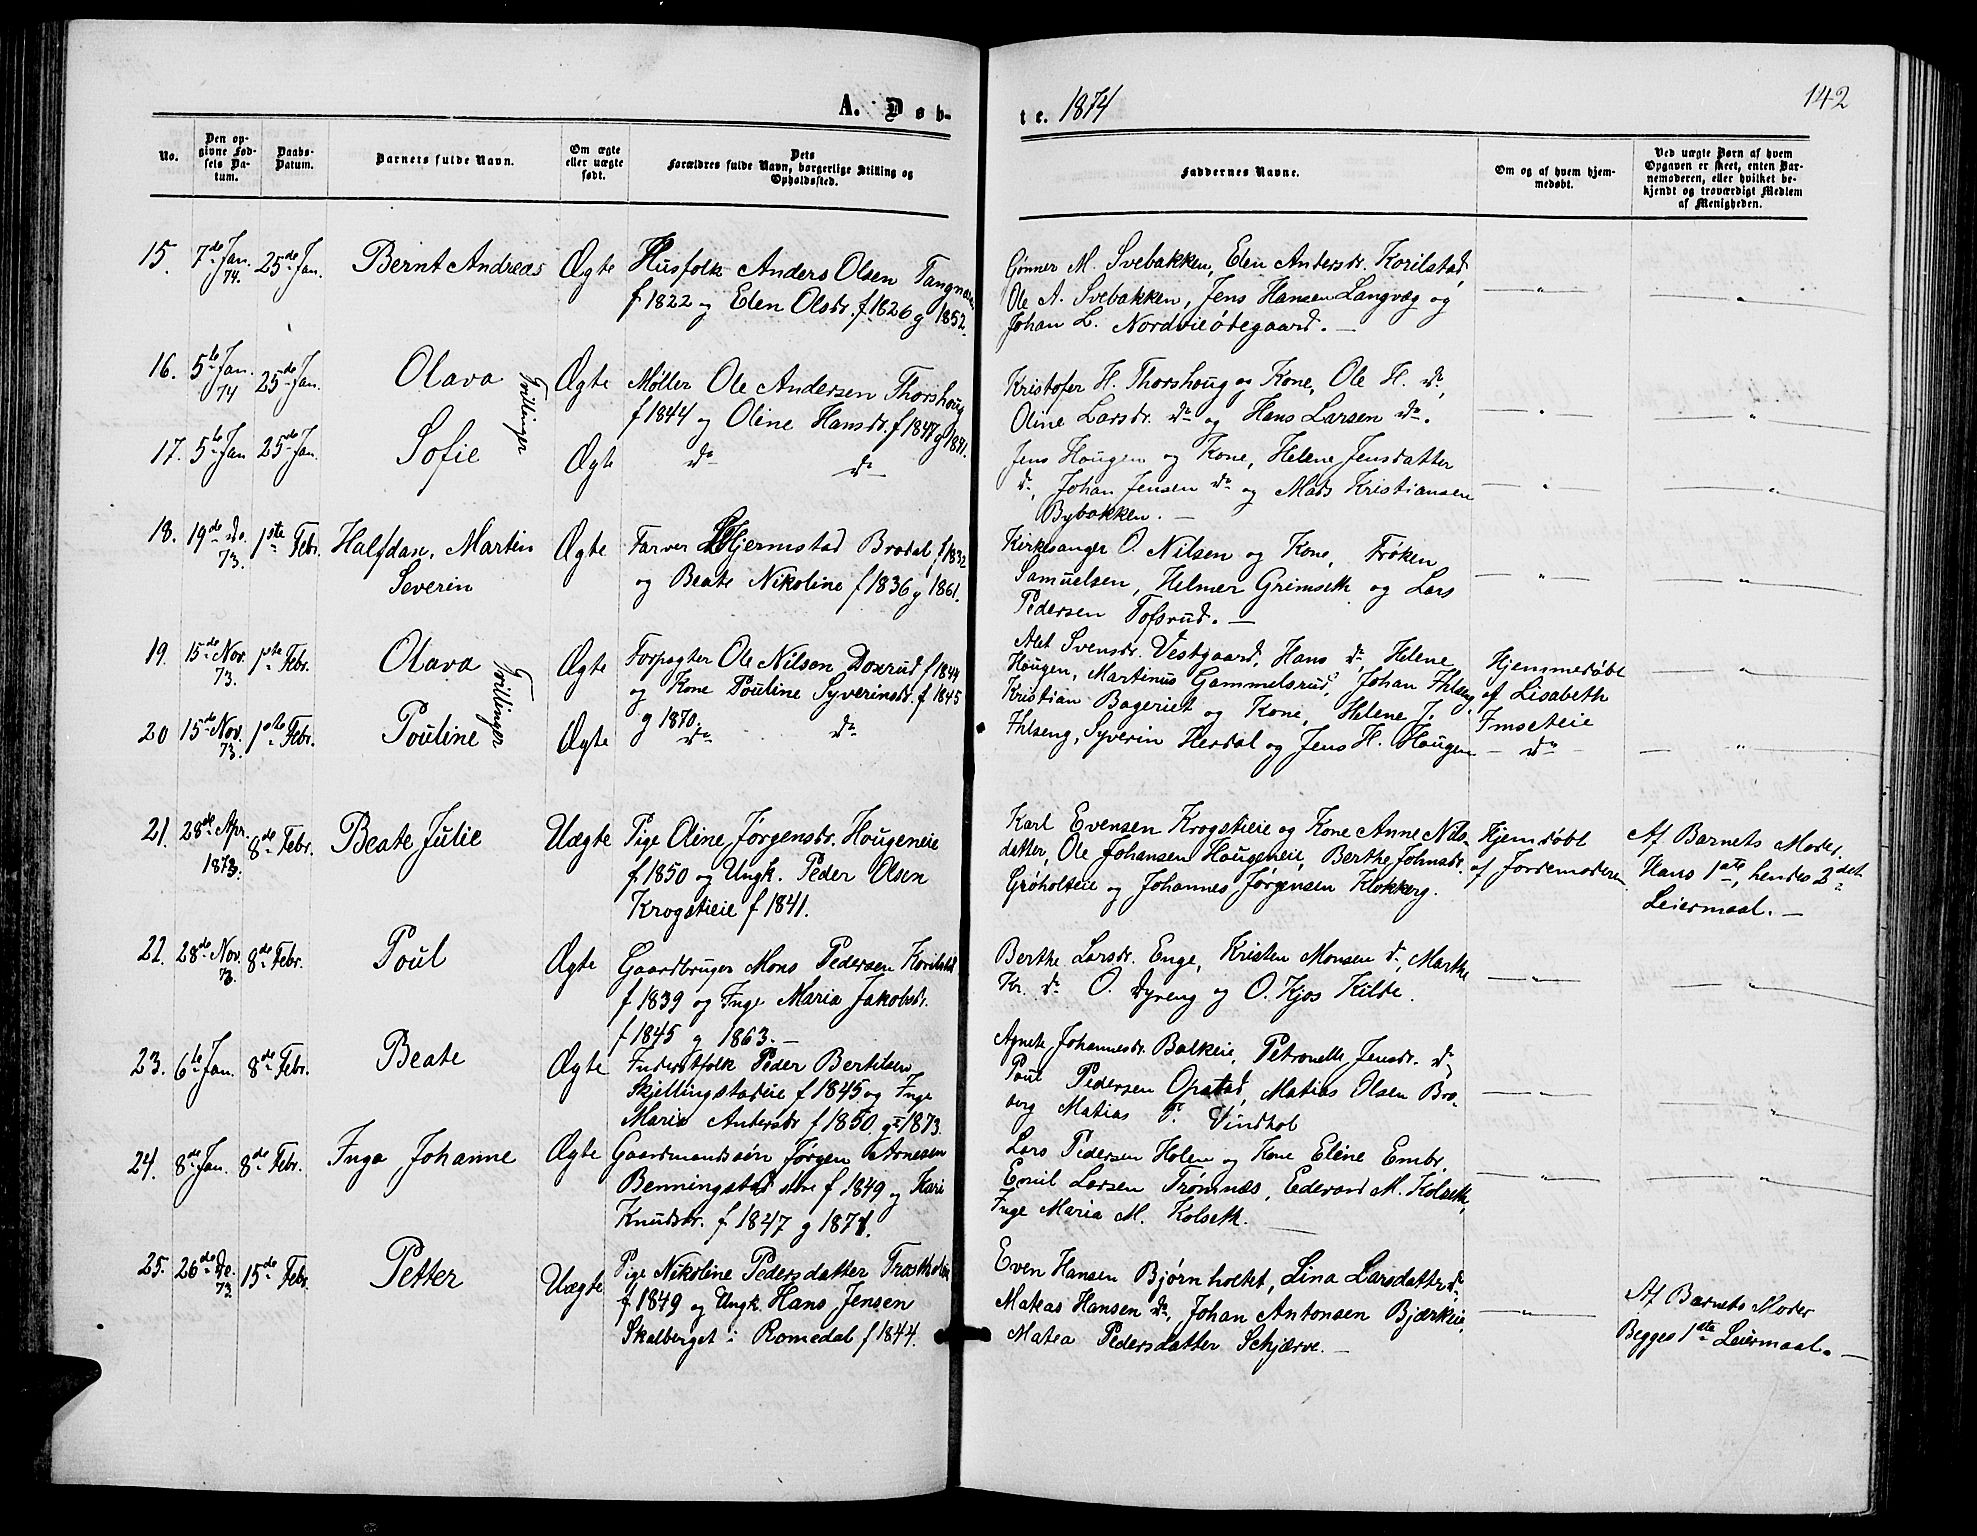 A. Døb-
te. 1874
142
No.
Den op-
givne Fød-
sels Da-
tum.
Daabs-
Datum.
Barnets fulde Navn.
Om ægte
eller uægte
født.
Dets
Forældres fulde Navn, borgerlige Stilling og
Opholdssted.
Faddernes Navne.
Om og af hvem hjem-
medøbt.
Ved uægte Børn af hvem
Opgaven er skeet, enten Bar-
nemoderen, eller hvilket be-
kjendt og troværdigt Medlem
af Menigheden.
15. 7de Jan. 74. 25de Jan. Bernt Andreas Ægte
Husfolk Anders Olsen Tangnæs
f 1822 og Elen Olsdr. f 1826 g 1852.
Gønner M. Svebakken, Elen Andersdr. Korilstad,
Ole A. Svebakken, Jens Hansen Langvæg og
Johan L. Nordvieødegaard. —
— " — — " —
16. 5te Jan. 74 25de Jan. Olava Tvillinger Ægte
Møller Ole Andersen Thorshoug
f 1844 og Oline Hansdr. f 1847 g 1871.
Kristofer H. Thorshoug og Kone, Ole H. do,
Oline Larsdr. do og Hans Larsen do.
— " — — " —
17. 5te Jan 25de Jan. Sofie Ægte do do
Jens Hougen og Kone, Helene Jensdatter
do, Johan Jensen do og Mads Kristiansen
Bybakken. —
— " — — " —
18. 19de De. 73. 1ste Febr. Halfdan, Martin
Severin Ægte
Farver Hjermstad Brodal, f 1832
og Beate Nikoline f 1836 g 1861.
Kirkesanger O. Nilsen og Kone, Frøken
Samuelsen, Helmer Grimseth og Lars
Pedersen Tofsrud. —
— " — — " —
19. 15de Nov. 73. 1ste Febr. Olava Tvillinger Ægte
Forpagter Ole Nilsen Doxrud f 1844
og Kone Pouline Syverinsdr. f 1845
g 1870.
Alet Svensdr. Vestgaard, Hans do, Helene
Hougen, Martinus Gammelsrud, Johan Ihlseng,
Hjemmedøbt
af Lisabeth
Imseteie
— " —
20 15de Nov. 73. 1ste Febr. Pouline Ægte do do
Kristian Bageriet og Kone, Helene J.
Ihlseng, Syverin Herdal og Jens H. Hougen
— do — " —
21. 28de Apr. 1873. 8de Febr. Beate Julie Uægte
Pige Oline Jørgensdr. Hougeneie
f 1850 og Ungk. Peder Olsen
Krogstieie f 1841.
Karl Evensen Krogstieie og Kone Anne Nils-
datter, Ole Johansen Hougeneie, Berthe Johnsdr.
Grøholteie og Johannes Jørgensen Klokkerg.
Hjemdøbt
af Jordemoderen
Af Barnets Moder.
Hans 1ste, hendes 2det
Leiermaal. —
22. 28de Nov. 73. 8de Febr. Poul Ægte
Gaardbruger Mons Pedersen Korilstad
f 1839 og Inge Maria Jakobsdr.
f 1845 g 1863. —
Berthe Larsdr. Enge, Kristen Monsen do, Marthe
Kr. do O. Dyreng og O. Kjos Kilde.
— " — — " —
23. 6te Jan. 8de Febr. Beate Ægte
Inderstfolk Peder Bertilsen
Skjellingstadeie f 1845 og Inge
Maria Andersdr f 1850. g 1873.
Agnete Johannesdr. Balkeie, Petronelle Jensdr. do,
Poul Pedersen Opstad, Matias Olsen Bro-
berg Matias P. Vindhol
— " — — " —
24. 8de Jan. 8de Febr. Inga Johanne Ægte
Gaardmandssøn Jørgen Arnesen
Benningstad f 1849 og Kari
Knudsdr. f 1847 g 1871.
Lars Pedersen Holen og Kone Eline Embr.
Emil Larsen Trømnæs, Edevard M. Kolseth,
Inge Maria M. Kolseth. —
— " — — " —
25. 26de De. 73. 15de Febr. Petter Uægte
Pige Nikoline Pedersdatter
f 1849 og Ungk. Hans Jensen
Skalberget i Romedal f 1844.
Even Hansen Bjørnholtet, Lina Larsdatter do,
Mateas Hansen do, Johan Antonsen Bjærkeie,
Matea Pedersdatter Schjærve. —
— " —
Af Barnets Moder
Begges 1ste Leiermaal. —